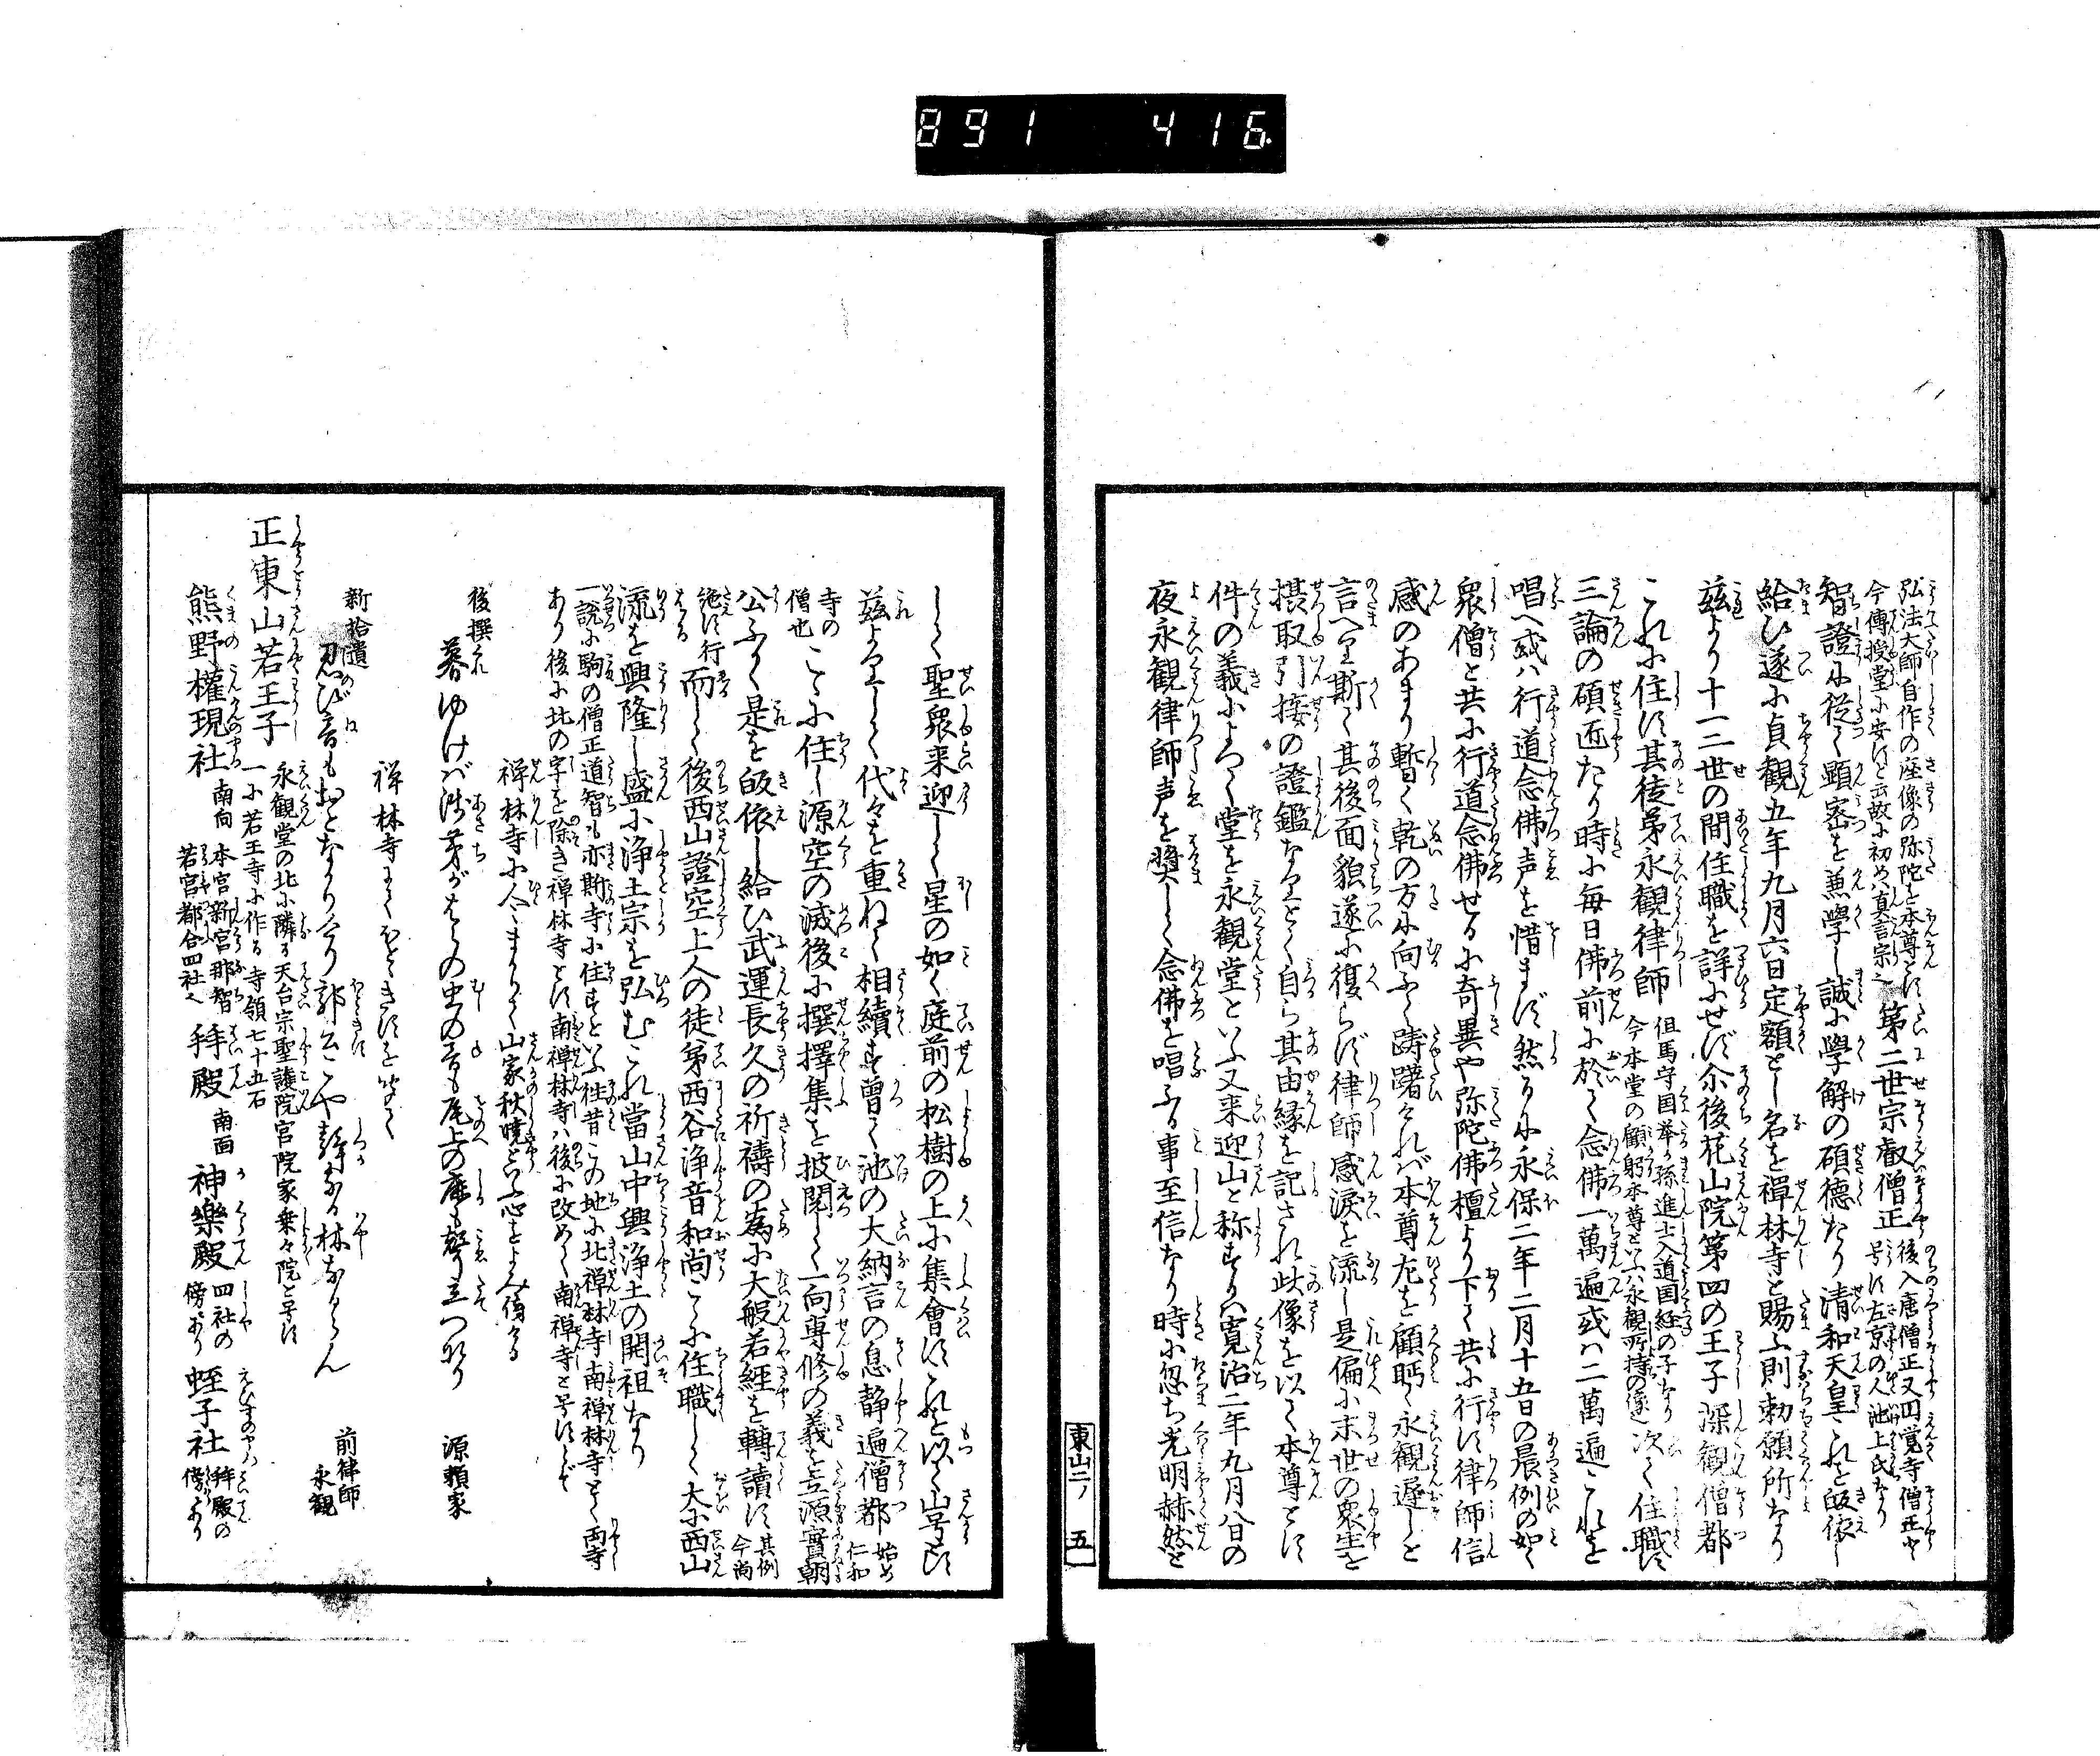 891 416
弘法大師自作の座像の弥陀を本尊とす
今傳授堂に安ずと云故に初めハ真言宗也
第二世宗叡僧正
後入唐僧正又円覚寺僧正や
号す左京の人池上氏なり
智證に従て顕密を兼學し誠に學解の碩徳たり清和天皇これを皈依し
給ひ遂に貞観五年九月六日定額とし名を禅林寺と賜ふ則勅願所なり
茲より十一二世の間住職を詳にせず尓後花山院第四の王子深観僧都
これに住す其徒弟永観律師
但馬守国挙の孫進士入道国経の子なり
今本堂の顧躬本尊といふハ永観所持の像
次て住職す
三論の碩匠たり時に毎日佛前に於て念佛一萬遍或ハ二萬遍これを
唱へ或ハ行道念佛声を惜まず然るに永保二年二月十五日の晨例の如く
衆僧と共に行道念佛せるに奇異や弥陀佛檀より下て共に行す律師信
感のあまり暫く乾の方に向ふて踌躇しけれバ本尊左を顧眄て永観遅しと
言へり斯て其後面貌遂に復らず律師感涙を流し是偏に末世の衆生を
摂取引接の證鑑なりとて自ら其由縁を記され此像を以て本尊とす
件の義によつて堂を永観堂といふ又来迎山と称するハ寛治二年九月八日の
夜永観律師声を奬して念佛を唱ふる事至信なり時に忽ち光明赫然と
東山二ノ 五
して聖衆来迎して星の如く庭前の松樹の上に集會すこれを以て山号とす
茲よりして代々を重ねて相續す曾て池の大納言の息静遍僧都
始め仁和
寺の僧也
こゝに住し源空の滅後に撰擇集を披閲して一向専修の義を立源實朝
公ふかく是を皈依し給ひ武運長久の祈禱の為に大般若経を轉讀す
其例今尚
絶ず行はる
而して後西山證空上人の徒弟西谷浄音和尚こゝに住職して大に西山
流を興隆し盛に浄土宗を弘むこれ當山中興浄土の開祖なり
一説に駒の僧正道智も亦斯寺に住すといふ往昔この地に北禅林寺南禅林寺とて両寺
あり後に北の字を除き禅林寺とす南禅林寺ハ後に改めて南禅寺と号すとぞ
禅林寺に人々まかりて山家秋暁といふ心をよみ侍ける
後撰
暮ゆけば浅茅がはらの虫の音も尾上の鹿も声立つなり
源頼家
禅林寺にてほとゝぎすを聞て
新拾遺
忍び音もおとなかりけり郭公こや静なる林なるらん
前律師
永観
正東山若王子
永観堂の北に隣る天台宗聖護院宮院家乗々院と号す
一に若王寺に作る寺領七十五石
熊野權現社
南向
本宮新宮那智
若宮都合四社也
拜殿
南面
神樂殿
四社の
傍にあり
蛭子社
拜殿の
傍にあり